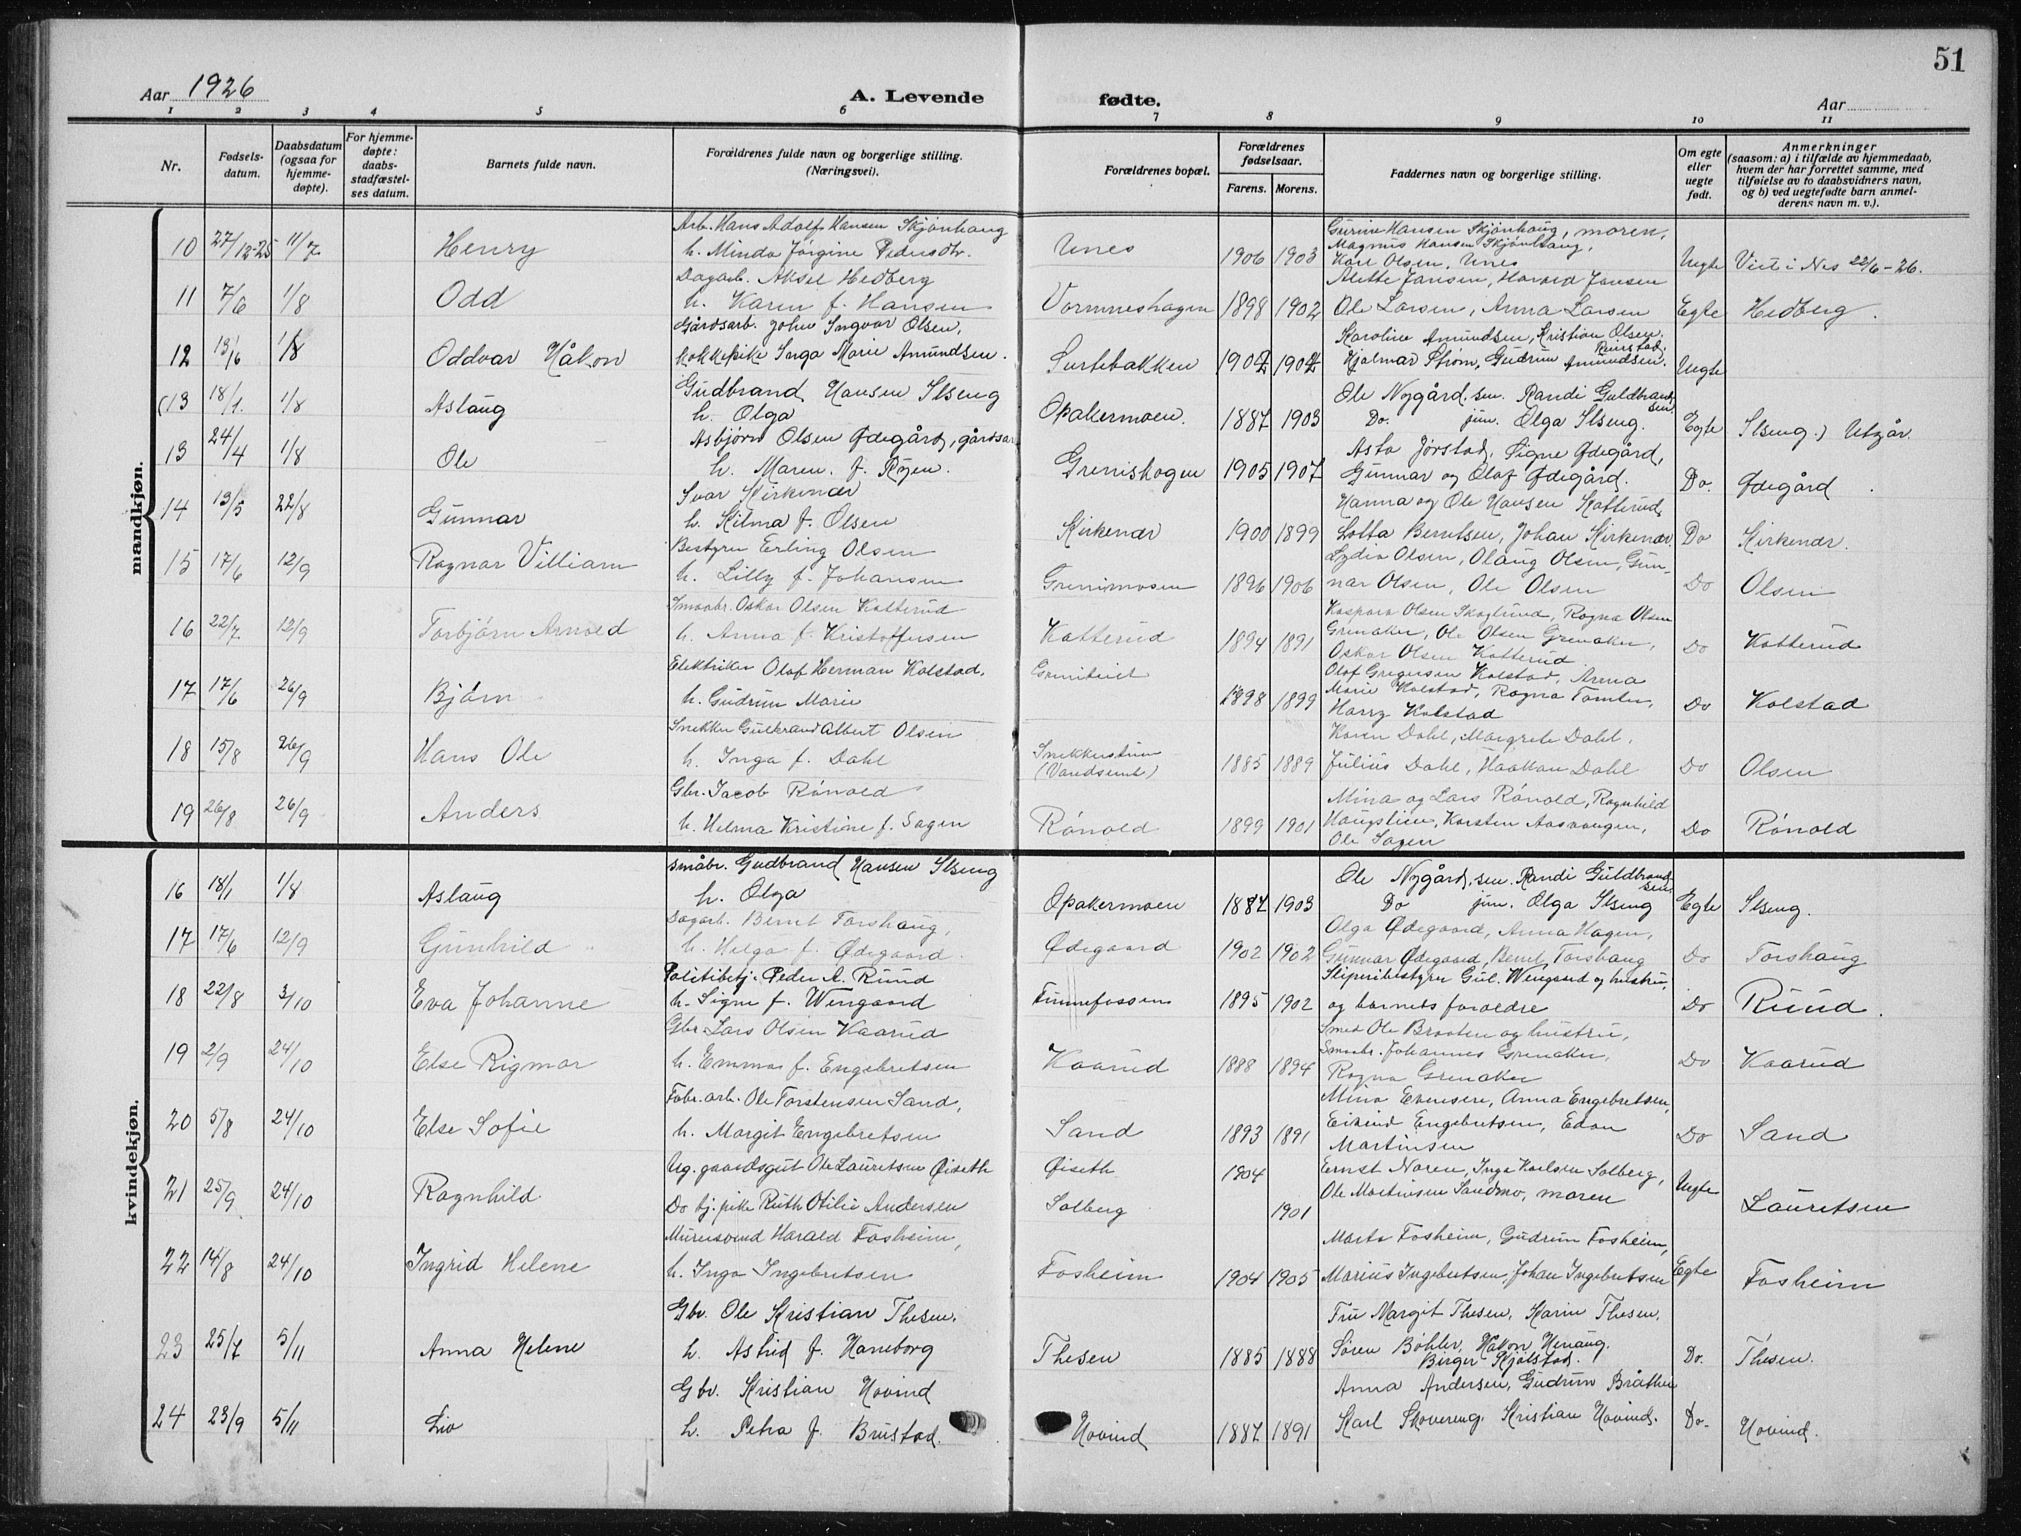 51
Aar 1926
A. Levende
fødte.
Aar
1 2 3 4 5 6 7 8 9 10 11
Nr.
Fødsels-
datum.
Daabsdatum
(ogsaa for
hjemme-
døpte).
For hjemme-
døpte:
daabs-
stadfæstel-
ses datum.
Barnets fulde navn.
Forældrenes fulde navn og borgerlige stilling.
(Næringsvei).
Forældrenes bopæl.
Forældrenes
fødselsaar.
Farens. Morens.
Faddernes navn og borgerlige stilling.
Om egte
eller
uegte
født.
Anmerkninger
(saasom: a) i tilfælde av hjemmedaab,
hvem der har forrettet samme, med
tilføielse av to daabsvidners navn,
og b) ved uegtefødte barn anmel-
derens navn m. v.).
mandkjøn.
Arb. Hans Adolf Hansen Skjønhaug
Gurine Hansen Skjønhaug, moren,
Magnus Hansen Skjønhaug,
10 27/12-25 11/7 Henry h. Minda Jørgine Pedersdtr. Unes 1906 1903 Karl Olsen, Unes Uegte Viet i Nes 22/6-26.
Dagarb. Aksel Hedberg
Alette Jansen, Harald Jansen
11 7/6 1/8 Odd h. Karen f. Hansen Vormneshagen 1898 1902 Ole Larsen, Anna Larsen Egte Hedberg.
Gårdsarb. John Ingvar Olsen,
Karoline Amundsen, Kristian Olsen
12 13/6 1/8 Oddvar Håkon kokkepike Inga Marie Amundsen. Surtebakken 1902 1904 Hjalmar Strøm, Gudrun Amundsen. Uegte
Gudbrand Hansen Ilseng
Ole Nygård, sen. Randi Guldbrand-
sen
(13 18/1. 1/8 Aslaug h. Olga Opakermoen. 1887 1903 Do. jun. Olga Ilseng. Egte Ilseng.) Utgår.
Asbjørn Olsen Ødegård, gårdsar
Asta Jørstad, Signe Ødegård,
13 24/4 1/8 Ole h. Maren. f. Røen. Grenishagen 1905 1907 Gunnar og Olaf Ødegård. Do. Ødegård.
Ivar Kirkenær
Hanna og Ole Hansen Katterud,
14 13/5 22/8 Gunnar h. Hilma f. Olsen Kirkenær 1900 1899 Lotta Berntsen, Johan Kirkenær. Do Kirkenær.
Bestyrer Erling Olsen
Lydia Olsen, Olaug Olsen, Gun-
15 17/6 12/9 Ragnar Villiam h. Lilly f. Johansen Grenimosen 1896 1906 nar Olsen, Ole Olsen Do Olsen
Smaabr. Oskar Olsen Katterud
Kaspara Olsen Skoglund, Ragna Olsen
16 22/7 12/9 Torbjørn Arnold h. Anna f. Kristoffersen Katterud 1894 1891 Grenaker, Ole Olsen Grenaker, Do Katterud
Oskar Olsen Katterud.
Elektriker Olaf Herman Kolstad.
Olaf Gregersen Kolstad, Anna
17 17/6 26/9 Bjørn h. Gudrun Marie 1898 1899 Marie Kolstad, Ragna Tomter, Do Kolstad
Harry Kolstad
Snekker Gulbrand Albert Olsen
Karen Dahl, Margrete Dahl,
18 15/8 26/9 Hans Ole h. Inga f. Dahl 1885 1889 Julius Dahl, Haakon Dahl Do Olsen
Gbr. Jacob Rånold
Mina og Lars Rånold, Ragnhild
19 26/8 26/9 Anders h. Helma Kristine f. Sagen Rånold 1899 1901 Haugslien, Karsten Aasvangen, Do Rånold
Ole Sagen
kvindekjøn.
småbr. Gudbrand Hansen Ilseng
Ole Nygård, sen. Randi Guldbrand-
sen
16 18/1 1/8 Aslaug h. Olga Opakermoen 1887 1903 Do jun. Olga Ilseng Egte Ilseng.
Dagarb. Bernt Torshaug,
Olga Ødegaard, Anna Hagen,
17 17/6 12/9 Gunhild h. Helga f. Ødegaard. Ødegaard 1902 1902 Gunnar Ødegaard, Bernt Torshaug Do Torshaug
Politibetj. Peder A. Ruud
Sliperibestyrer Gul. Wengaard og hustru,
18 22/8 3/10 Eva Johanne h. Signe f. Wengaard Funnefossen 1895 1902 og barnets foreldre Do Ruud.
Gbr. Lars Olsen Kaarud
Smed Ole Braaten og hustru,
19 2/9 24/10 Else Rigmor h. Emma f. Engebretsen Kaarud 1888 1894 Smaabr. Johannes Grenaker, Do Kaarud
Ragna Grenaker
Fabr. arb. Ole Torstensen Sand,
Mina Evensen, Anna Engebretsen,
20 5/8 24/10 Else Sofie h. Margit Engebretsen Sand 1893 1891 Eivind Engebretsen, Edon Do Sand
Martinsen
Ug. gaardsgut Ole Lauritsen Øiseth Øiseth 1904 Ernst Noren, Inga Karlsen Solberg,
21 25/9 24/10 Ragnhild Do tj. pike Ruth Otilie Andersen Solberg 1901 Ole Martinsen Sandmo, moren Uegte Lauritsen
Murersvend Harald Fosheim,
Marta Fosheim, Gudrun Fosheim,
22 14/8 24/10 Ingrid Helene h. Inga Ingebretsen Fosheim 1904 1905 Marius Ingebretsen, Johan Ingebretsen Egte Fosheim
Gbr. Ole Kristian Thesen,
Fru Margit Thesen, Karin Thesen,
23 25/7 5/11 Anna Helene h. Astrid f. Haneborg Thesen 1885 1888 Søren Bøhler, Håkon Henaug. Do. Thesen.
Birger Kjølstad.
Gbr. Kristian Hovind
Anna Andersen, Gudrun Bråthen
24 23/9 5/11 Liv h. Petra f. Brustad. Hovind 1887 1891 Karl Skovereng, Kristian Hovind. Do. Hovind.